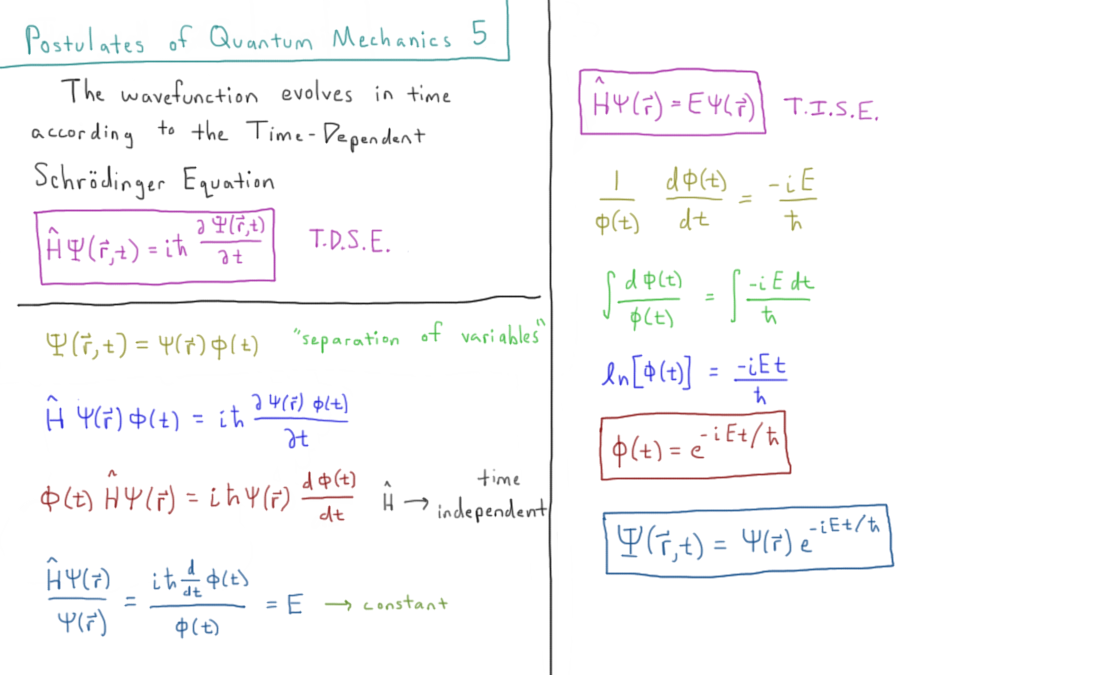 Postulates of Quantum Mechanics 5
The wavefunction evolves in time
according to the Time-Dependent
Schrödinger Equation
ĤΨ(r⃗,t) = iħ ∂Ψ(r⃗,t)/∂t T.D.S.E.
Ψ(r⃗,t) = ψ(r⃗)φ(t) "separation of variables"
Ĥ ψ(r⃗)φ(t) = iħ ∂ψ(r⃗)φ(t)/∂t
φ(t) Ĥψ(r⃗) = iħψ(r⃗) dφ(t)/dt Ĥ → time
independent
Ĥψ(r⃗)/ψ(r⃗) = iħ d/dt φ(t)/φ(t) = E → constant
Ĥψ(r⃗) = Eψ(r⃗) T.I.S.E.
1/φ(t) dφ(t)/dt = -iE/ħ
∫ dφ(t)/φ(t) = ∫ -iE dt/ħ
ln[φ(t)] = -iEt/ħ
φ(t) = e^{-iEt/ħ}
Ψ(r⃗,t) = ψ(r⃗) e^{-iEt/ħ}